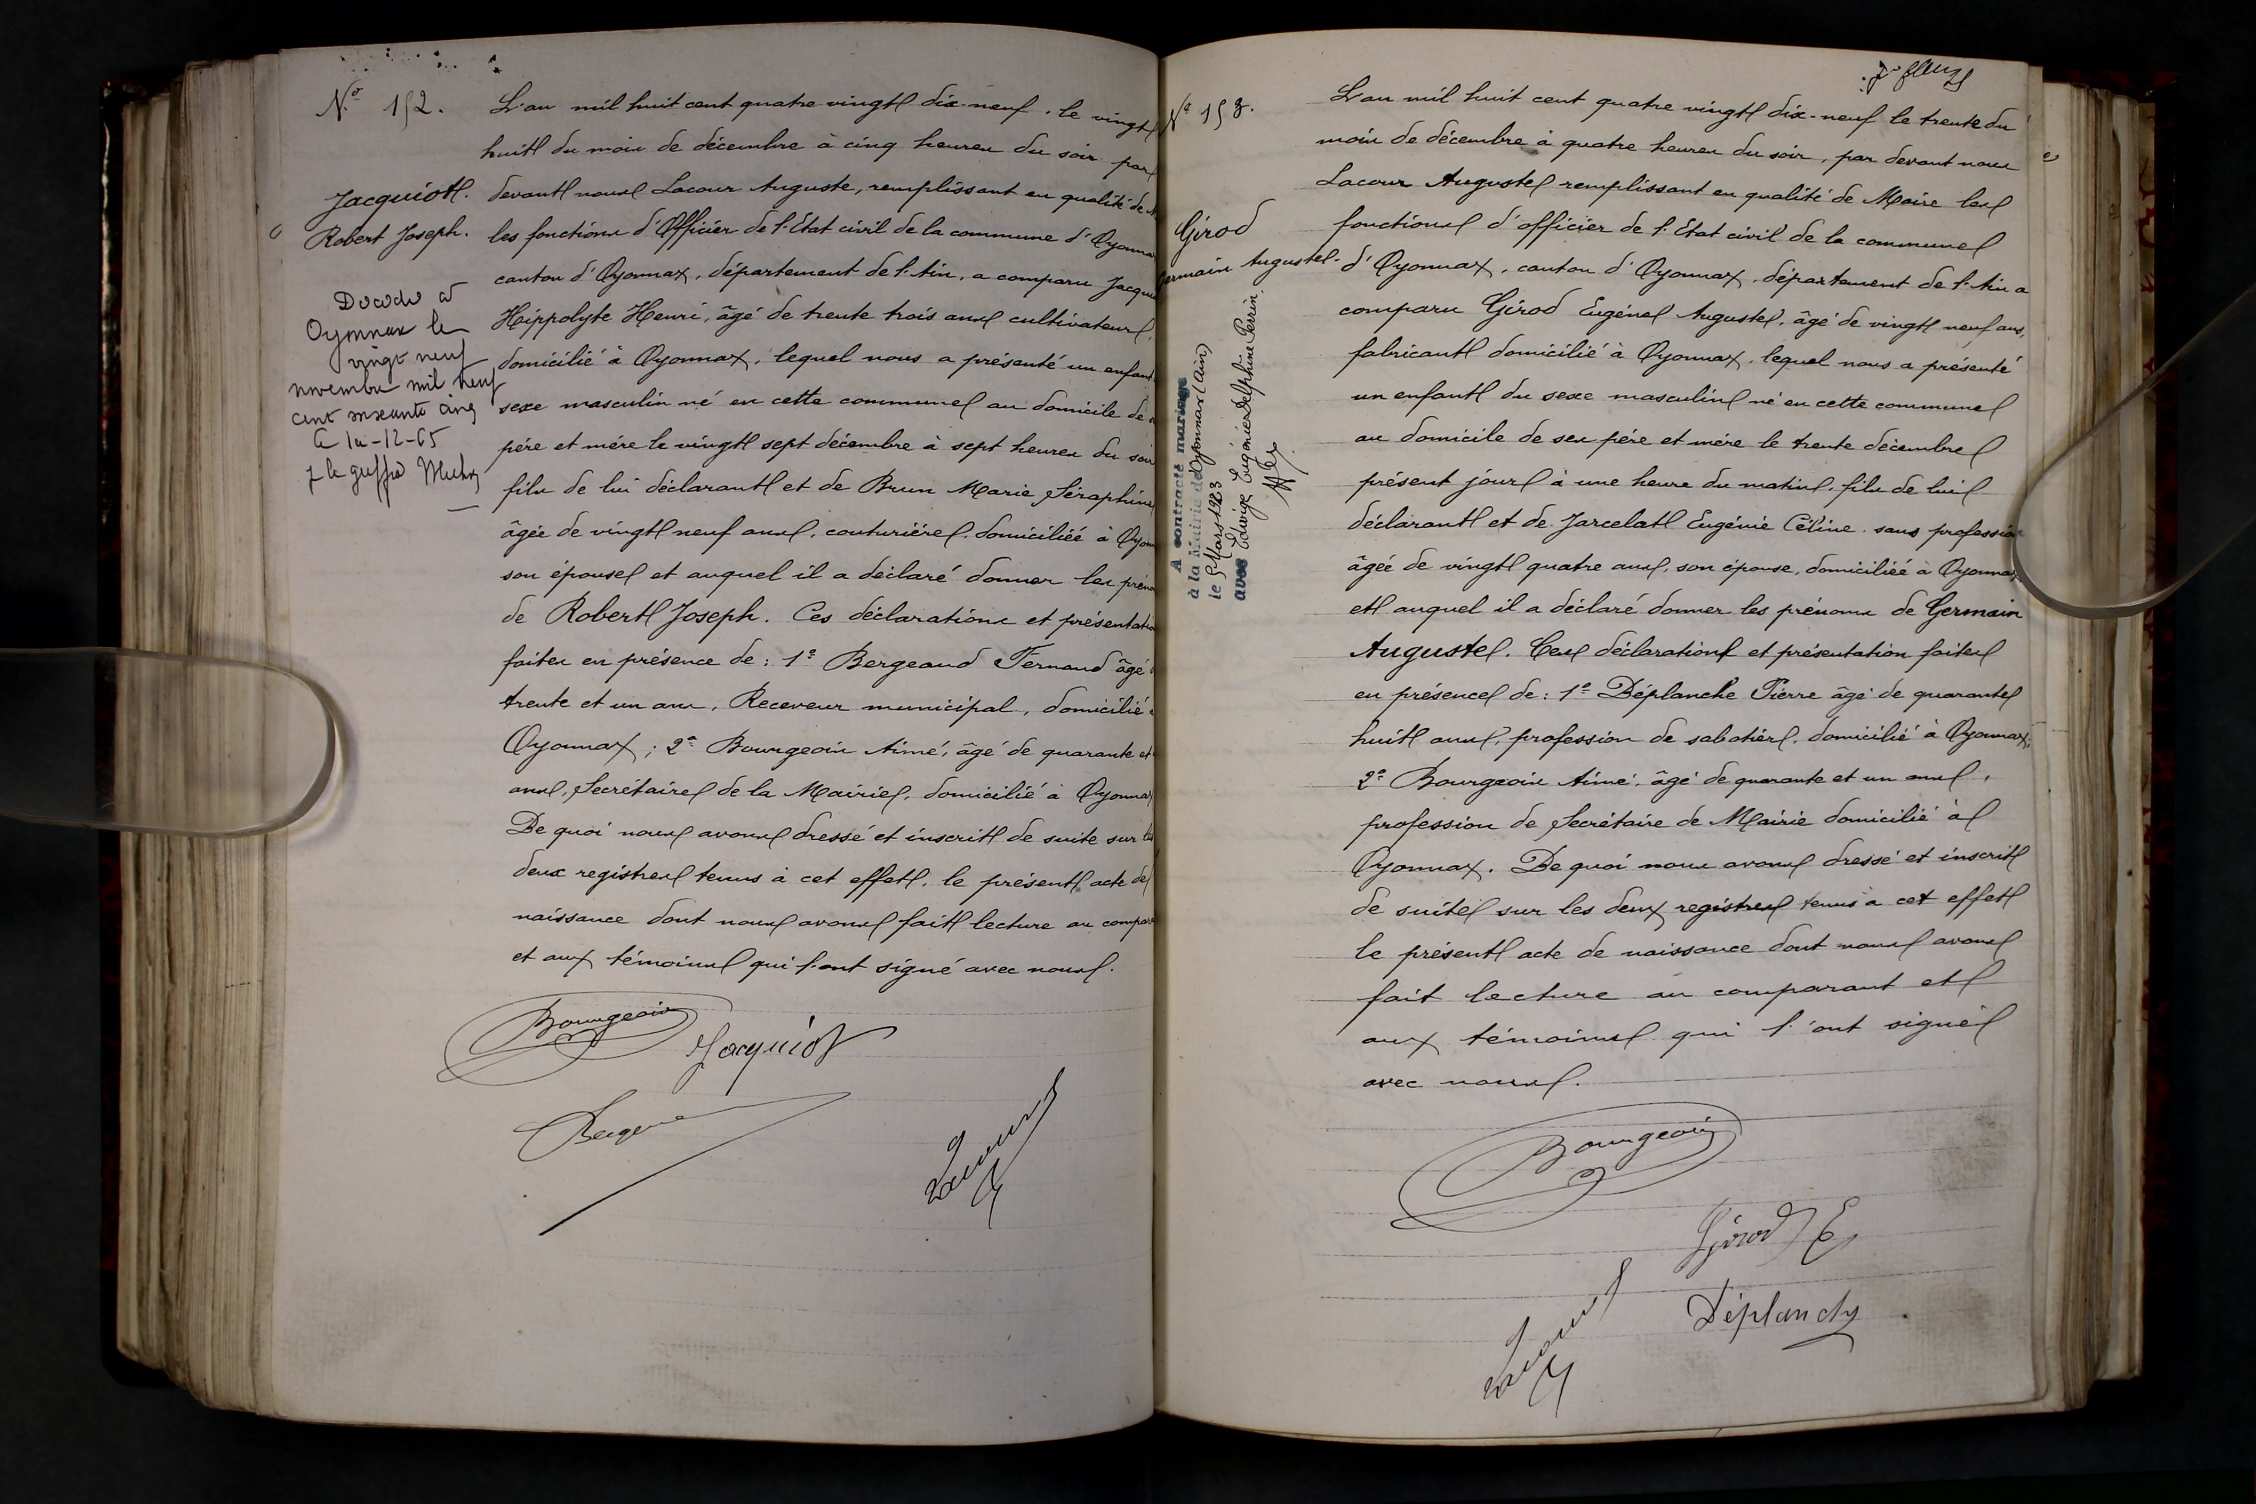 No 152.
Jacquiot.
Robert Joseph.
Décédé à
Oyonnax le
vingt neuf
novembre mil neuf
cent soixante cinq
-12-65
le greffier
L'an mil huit cent quatre-vingt dix-neuf, le vingt
huit du mois de décembre à cinq heures du soir par
devant nous Lacour Auguste, remplissant en qualité de
les fonctions d'Officier de l'Etat civil de la commune d'Oyonna
canton d'Oyonnax, département de l'Ain, a comparu Jacqu
Hippolyte Henri, âgé de trente trois ans cultivateur,
domicilié à Oyonnax, lequel nous a présenté un enfant
sexe masculin né en cette commune au domicile de
père et mère le vingt sept décembre à sept heures du soir
fils de lui déclarant et de Brun Marie Séraphine
âgée de vingt neuf ans, couturière, domiciliée à Oyon
son épouse et auquel il a déclaré donner les préno
de Robert Joseph. Ces déclarations et présentatio
faites en présence de : 1º Bergeaud Fernand âgé
trente et un ans, Receveur municipal, domicilié
Oyonnax ; 2º Bourgeois Aimé, âgé de quarante et
ans, Secrétaire de la Mairie, domicilié à Oyonnax
De quoi nous avons dressé et inscrit de suite sur les
deux registres tenus à cet effet, le présent acte de
naissance dont nous avons fait lecture au compar
et aux témoins qui l'ont signé avec nous.
Bourgeois
Jacquiot
Lacour
No 153.
Girod
ermain Auguste.
A contracté mariage
à la Mairie d'Oyonnax (Ain)
le Mars 1923
avec Edwige Eugénie Delphine Perrin.
L'an mil huit cent quatre vingt dix-neuf le trente du
mois de décembre à quatre heures du soir, par devant nous
Lacour Auguste remplissant en qualité de Maire les
fonctions d'officier de l'Etat civil de la commune
d'Oyonnax, canton d'Oyonnax, département de l'Ain a
comparu Girod Eugène Auguste, âgé de vingt neuf ans,
fabricant domicilié à Oyonnax, lequel nous a présenté
un enfant du sexe masculin né en cette commune
au domicile de ses père et mère le trente décembre
présent jour à une heure du matin, fils de lui
déclarant et de Jarcelat Eugénie Céline, sans profession
âgée de vingt quatre ans, son épouse, domiciliée à Oyonnax
et auquel il a déclaré donner les prénoms de Germain
Auguste. Ces déclarations et présentation faites
en présence de : 1º Déplanche Pierre âgé de quarante
huit ans, profession de sabotier, domicilié à Oyonnax,
2º Bourgeois Aimé, âgé de quarante et un ans,
profession de Secrétaire de Mairie domicilié à
Oyonnax. De quoi nous avons dressé et inscrit
de suite sur les deux registres tenus à cet effet
le présent acte de naissance dont nous avons
fait lecture au comparant et
aux témoins qui l'ont signé
avec nous.
Bourgeois
Girod E
Lacour
Déplanche